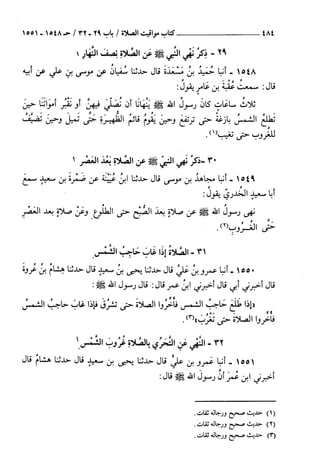 ٤٨٤ ــــــ كتاب مواقيت الصلاة / باب ٢٩ - ٣٢ / حـ ١٥٤٨ - ١٥٥١
٢٩ - ذِكرُ نَهي النبيّ ﷺ عن الصَّلاةِ نِصفَ النَّهار ١
١٥٤٨ - أنبا حُمَيدُ بنُ مَسْعَدَةَ قال حدثنا سُفيانُ عن موسى بنِ عليٍ عن أبيه
قال: سمعتُ عُقْبَةَ بن عامرٍ يقول:
ثلاثُ ساعاتٍ كانَ رسولُ الله ﷺ يَنْهَانَا أن نُصَلِّيَ فيهنّ أو نَقْبُرَ أمواتَنا حينَ
تَطلُعُ الشمسُ بازغَةً حتى ترتفعَ وحينَ يقُومُ قائمُ الظَّهيرَةِ حتَّى تَميلَ وحينَ تضَيَّفُ
للغروبِ حتى تغيبَ(١).
٣٠ - ذكرُ نَهي النبيّ ﷺ عن الصَّلاةِ بَعدَ العَصْرِ ١
١٥٤٩ - أنبا مجاهدُ بن موسى قال حدثنا ابنُ عُيَيْنَةَ عن ضَمْرَةَ بن سعيدٍ سمعَ
أبا سعيدٍ الخُدريَّ يقولُ:
نهى رسولُ الله ﷺ عن صلاةٍ بعدَ الصُّبحِ حتى الطلوعِ وعَنْ صلاةٍ بعدَ العَصْرِ
حتَّى الغُروبِ(٢).
٣١ - الصَّلاةُ إذَا غابَ حَاجِبُ الشَّمْسِ
١٥٥٠ - أنبا عمرو بنُ عَلِيٍّ قال حدثنا يحيى بنُ سعيدٍ قال حدثنا هشامُ بنُ عُروةَ
قال أخبرني أبي قال أخبرني ابنُ عمرَ قال: قال رسولُ الله ﷺ:
«إذا طَلَعَ حاجبُ الشمسِ فأخِّروا الصلاةَ حتى تَشرُقَ فإذا غابَ حاجبُ الشمسِ
فأخروا الصلاةَ حتى تَغْرُبَ»(٣).
٣٢ - النَّهيُ عن التَّحرّي بالصَّلاةِ غُروبَ الشَّمْسِ ١
١٥٥١ - أنبا عَمرو بن عليٍّ قال حدثنا يحيى بن سعيدٍ قال حدثنا هشام قال
أخبرني ابن عُمرَ أن رسول الله ﷺ قال:
(١) حديث صحيح ورجاله ثقات.
(٢) حديث صحيح ورجاله ثقات.
(٣) حديث صحيح ورجاله ثقات.